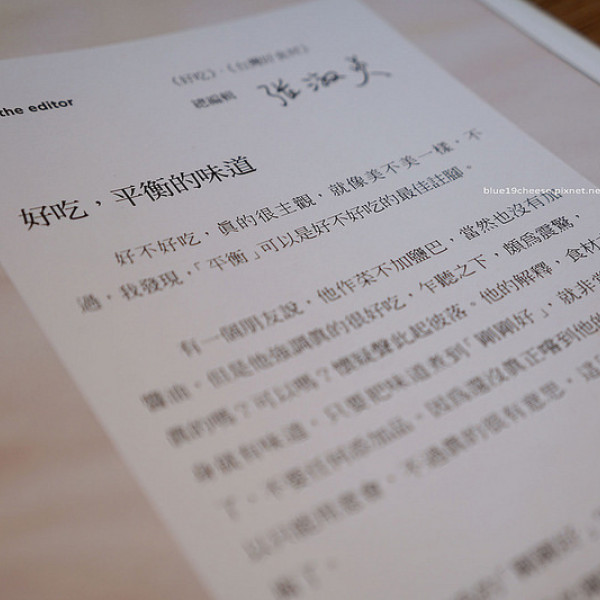 the editor
《好吃》·《台灣好食材》
總編輯 張淑美
好吃，平衡的味道
好不好吃，真的很主觀，就像美不美一樣，不
過，我發現，「平衡」可以是好不好吃的最佳註腳。
有一個朋友說，他作菜不加鹽巴，當然也沒有放
醬油，但是他強調真的很好吃，乍聽之下，頗為震驚，
真的嗎？可以嗎？懷疑聲此起彼落。他的解釋，食材
身就有味道，只要把味道煮到「剛剛好」，就非常
了，不要任何添加品，因為還沒真正嚐到他的
以只能用意會，不過真的很有意思，這
blue19cheese.pixnet.ne